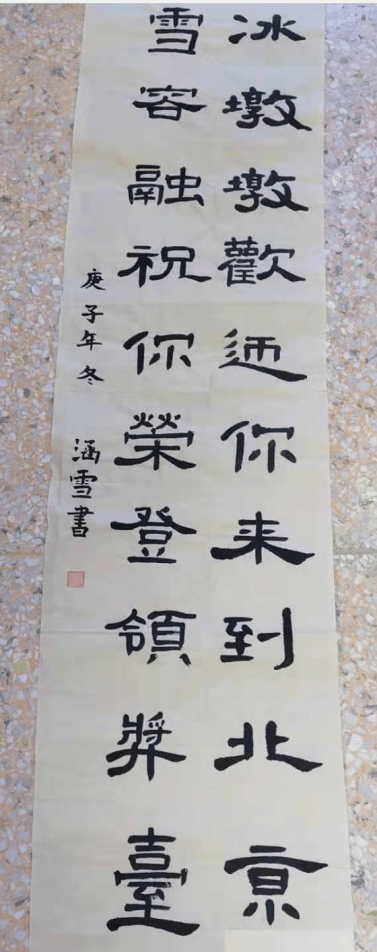 冰墩墩歡迎你来到北京
雪容融祝你榮登領獎臺
庚子年冬 涵雪書